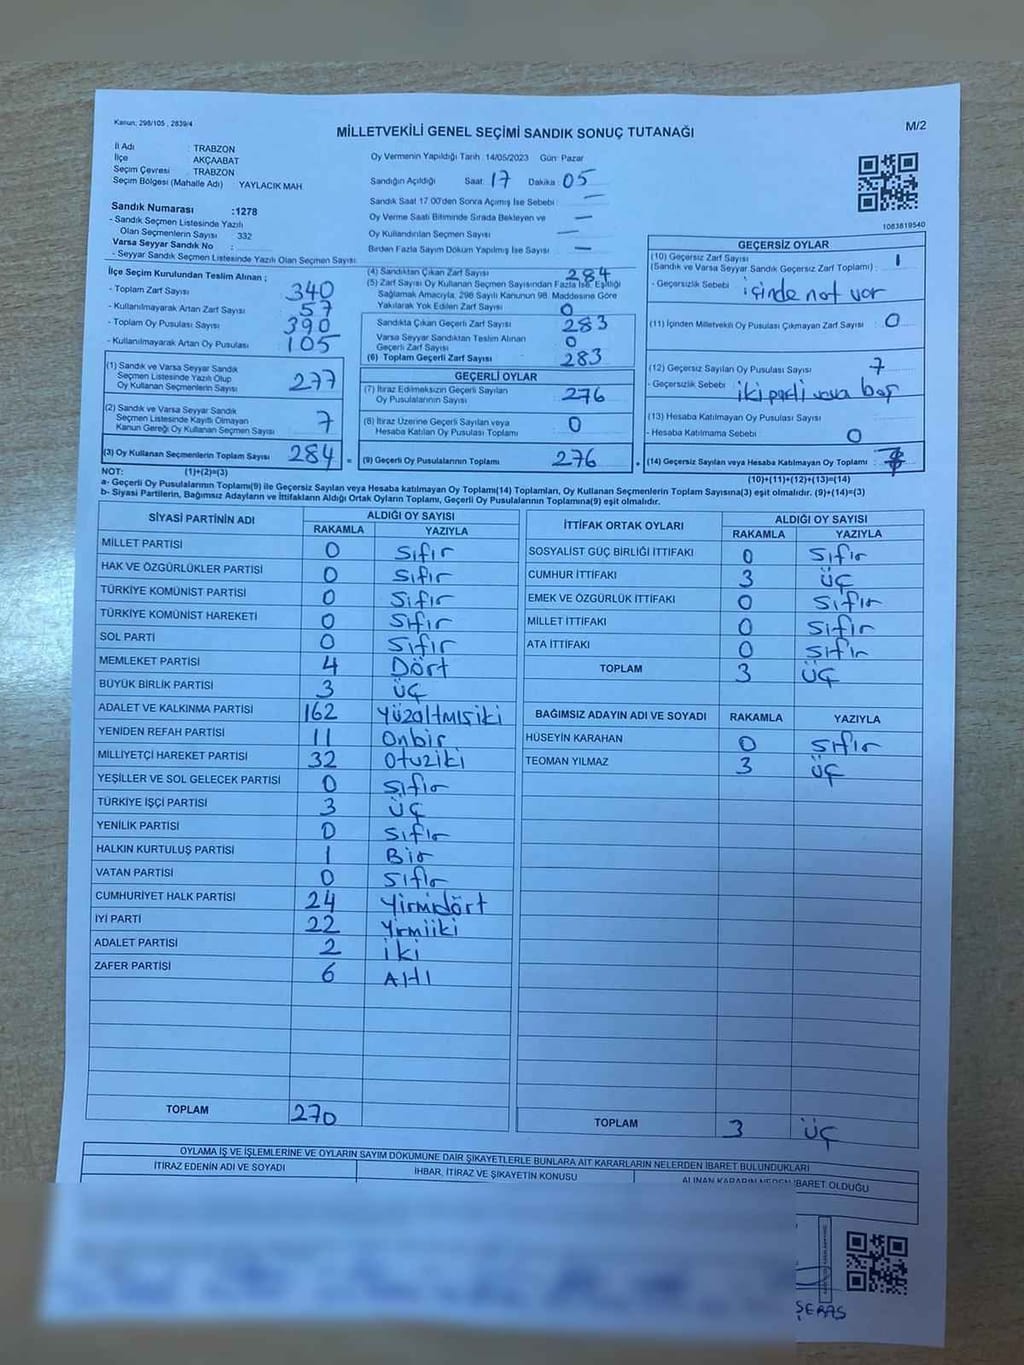 Kanun: 298/105 , 2839/4
MİLLETVEKİLİ GENEL SEÇİMİ SANDIK SONUÇ TUTANAĞI
M/2
İl Adı : TRABZON
İlçe AKÇAABAT
Seçim Çevresi : TRABZON
Seçim Bölgesi (Mahalle Adı) YAYLACIK MAH
Oy Vermenin Yapıldığı Tarih 14/05/2023 Gün: Pazar
Sandığın Açıldığı Saat: 17 Dakika: 05
Sandık Saat 17:00'den Sonra Açılmış İse Sebebi —
Oy Verme Saati Bitiminde Sırada Bekleyen ve —
Oy Kullandırılan Seçmen Sayısı —
Birden Fazla Sayım Döküm Yapılmış İse Sayısı —
1083819540
Sandık Numarası :1278
- Sandık Seçmen Listesinde Yazılı
Olan Seçmenlerin Sayısı : 332
Varsa Seyyar Sandık No :
- Seyyar Sandık Seçmen Listesinde Yazılı Olan Seçmen Sayısı:
İlçe Seçim Kurulundan Teslim Alınan ;
- Toplam Zarf Sayısı 340
- Kullanılmayarak Artan Zarf Sayısı 57
- Toplam Oy Pusulası Sayısı 390
- Kullanılmayarak Artan Oy Pusulası 105
(1) Sandık ve Varsa Seyyar Sandık
Seçmen Listesinde Yazılı Olup
Oy Kullanan Seçmenlerin Sayısı 277
(2) Sandık ve Varsa Seyyar Sandık
Seçmen Listesinde Kayıtlı Olmayan
Kanun Gereği Oy Kullanan Seçmen Sayısı 7
(3) Oy Kullanan Seçmenlerin Toplam Sayısı 284 =
(4) Sandıktan Çıkan Zarf Sayısı 284
(5) Zarf Sayısı Oy Kullanan Seçmen Sayısından Fazla İse, Eşitliği
Sağlamak Amacıyla, 298 Sayılı Kanunun 98. Maddesine Göre
Yakılarak Yok Edilen Zarf Sayısı 0
Sandıkta Çıkan Geçerli Zarf Sayısı 283
Varsa Seyyar Sandıktan Teslim Alınan
Geçerli Zarf Sayısı 0
(6) Toplam Geçerli Zarf Sayısı 283
GEÇERLİ OYLAR
(7) İtiraz Edilmeksizin Geçerli Sayılan
Oy Pusulalarının Sayısı 276
(8) İtiraz Üzerine Geçerli Sayılan veya
Hesaba Katılan Oy Pusulası Toplamı 0
(9) Geçerli Oy Pusulalarının Toplamı 276
GEÇERSİZ OYLAR
(10) Geçersiz Zarf Sayısı
(Sandık ve Varsa Seyyar Sandık Geçersiz Zarf Toplamı) : 1
- Geçersizlik Sebebi : içinde not var
(11) İçinden Milletvekili Oy Pusulası Çıkmayan Zarf Sayısı : 0
(12) Geçersiz Sayılan Oy Pusulası Sayısı 7
- Geçersizlik Sebebi : iki parti veya boş
(13) Hesaba Katılmayan Oy Pusulası Sayısı :
- Hesaba Katılmama Sebebi : 0
(14) Geçersiz Sayılan veya Hesaba Katılmayan Oy Toplamı :
(10)+(11)+(12)+(13)=(14)
NOT: (1)+(2)=(3)
a- Geçerli Oy Pusulalarının Toplamı(9) ile Geçersiz Sayılan veya Hesaba katılmayan Oy Toplamı(14) Toplamları, Oy Kullanan Seçmenlerin Toplam Sayısına(3) eşit olmalıdır. (9)+(14)=(3)
b- Siyasi Partilerin, Bağımsız Adayların ve İttifakların Aldığı Ortak Oyların Toplamı, Geçerli Oy Pusulalarının Toplamına(9) eşit olmalıdır.
SİYASİ PARTİNİN ADI ALDIĞI OY SAYISI
RAKAMLA YAZIYLA
MİLLET PARTİSİ 0 Sıfır
HAK VE ÖZGÜRLÜKLER PARTİSİ 0 Sıfır
TÜRKİYE KOMÜNİST PARTİSİ 0 Sıfır
TÜRKİYE KOMÜNİST HAREKETİ 0 Sıfır
SOL PARTİ 0 Sıfır
MEMLEKET PARTİSİ 4 Dört
BÜYÜK BİRLİK PARTİSİ 3 üç
ADALET VE KALKINMA PARTİSİ 162 Yüzaltmışiki
YENİDEN REFAH PARTİSİ 11 Onbir
MİLLİYETÇİ HAREKET PARTİSİ 32 Otuziki
YEŞİLLER VE SOL GELECEK PARTİSİ 0 Sıfır
TÜRKİYE İŞÇİ PARTİSİ 3 üç
YENİLİK PARTİSİ 0 Sıfır
HALKIN KURTULUŞ PARTİSİ 1 Bir
VATAN PARTİSİ 0 Sıfır
CUMHURİYET HALK PARTİSİ 24 Yirmidört
İYİ PARTİ 22 Yirmiiki
ADALET PARTİSİ 2 iki
ZAFER PARTİSİ 6 Altı
TOPLAM 270
İTTİFAK ORTAK OYLARI ALDIĞI OY SAYISI
RAKAMLA YAZIYLA
SOSYALİST GÜÇ BİRLİĞİ İTTİFAKI 0 Sıfır
CUMHUR İTTİFAKI 3 üç
EMEK VE ÖZGÜRLÜK İTTİFAKI 0 Sıfır
MİLLET İTTİFAKI 0 Sıfır
ATA İTTİFAKI 0 Sıfır
TOPLAM 3 üç
BAĞIMSIZ ADAYIN ADI VE SOYADI RAKAMLA YAZIYLA
HÜSEYİN KARAHAN 0 Sıfır
TEOMAN YILMAZ 3 üç
TOPLAM 3 üç
OYLAMA İŞ VE İŞLEMLERİNE VE OYLARIN SAYIM DÖKÜMÜNE DAİR ŞİKAYETLERLE BUNLARA AİT KARARLARIN NELERDEN İBARET BULUNDUKLARI
İTİRAZ EDENİN ADI VE SOYADI İHBAR, İTİRAZ VE ŞİKAYETİN KONUSU ALINAN KARARIN NEDEN İBARET OLDUĞU